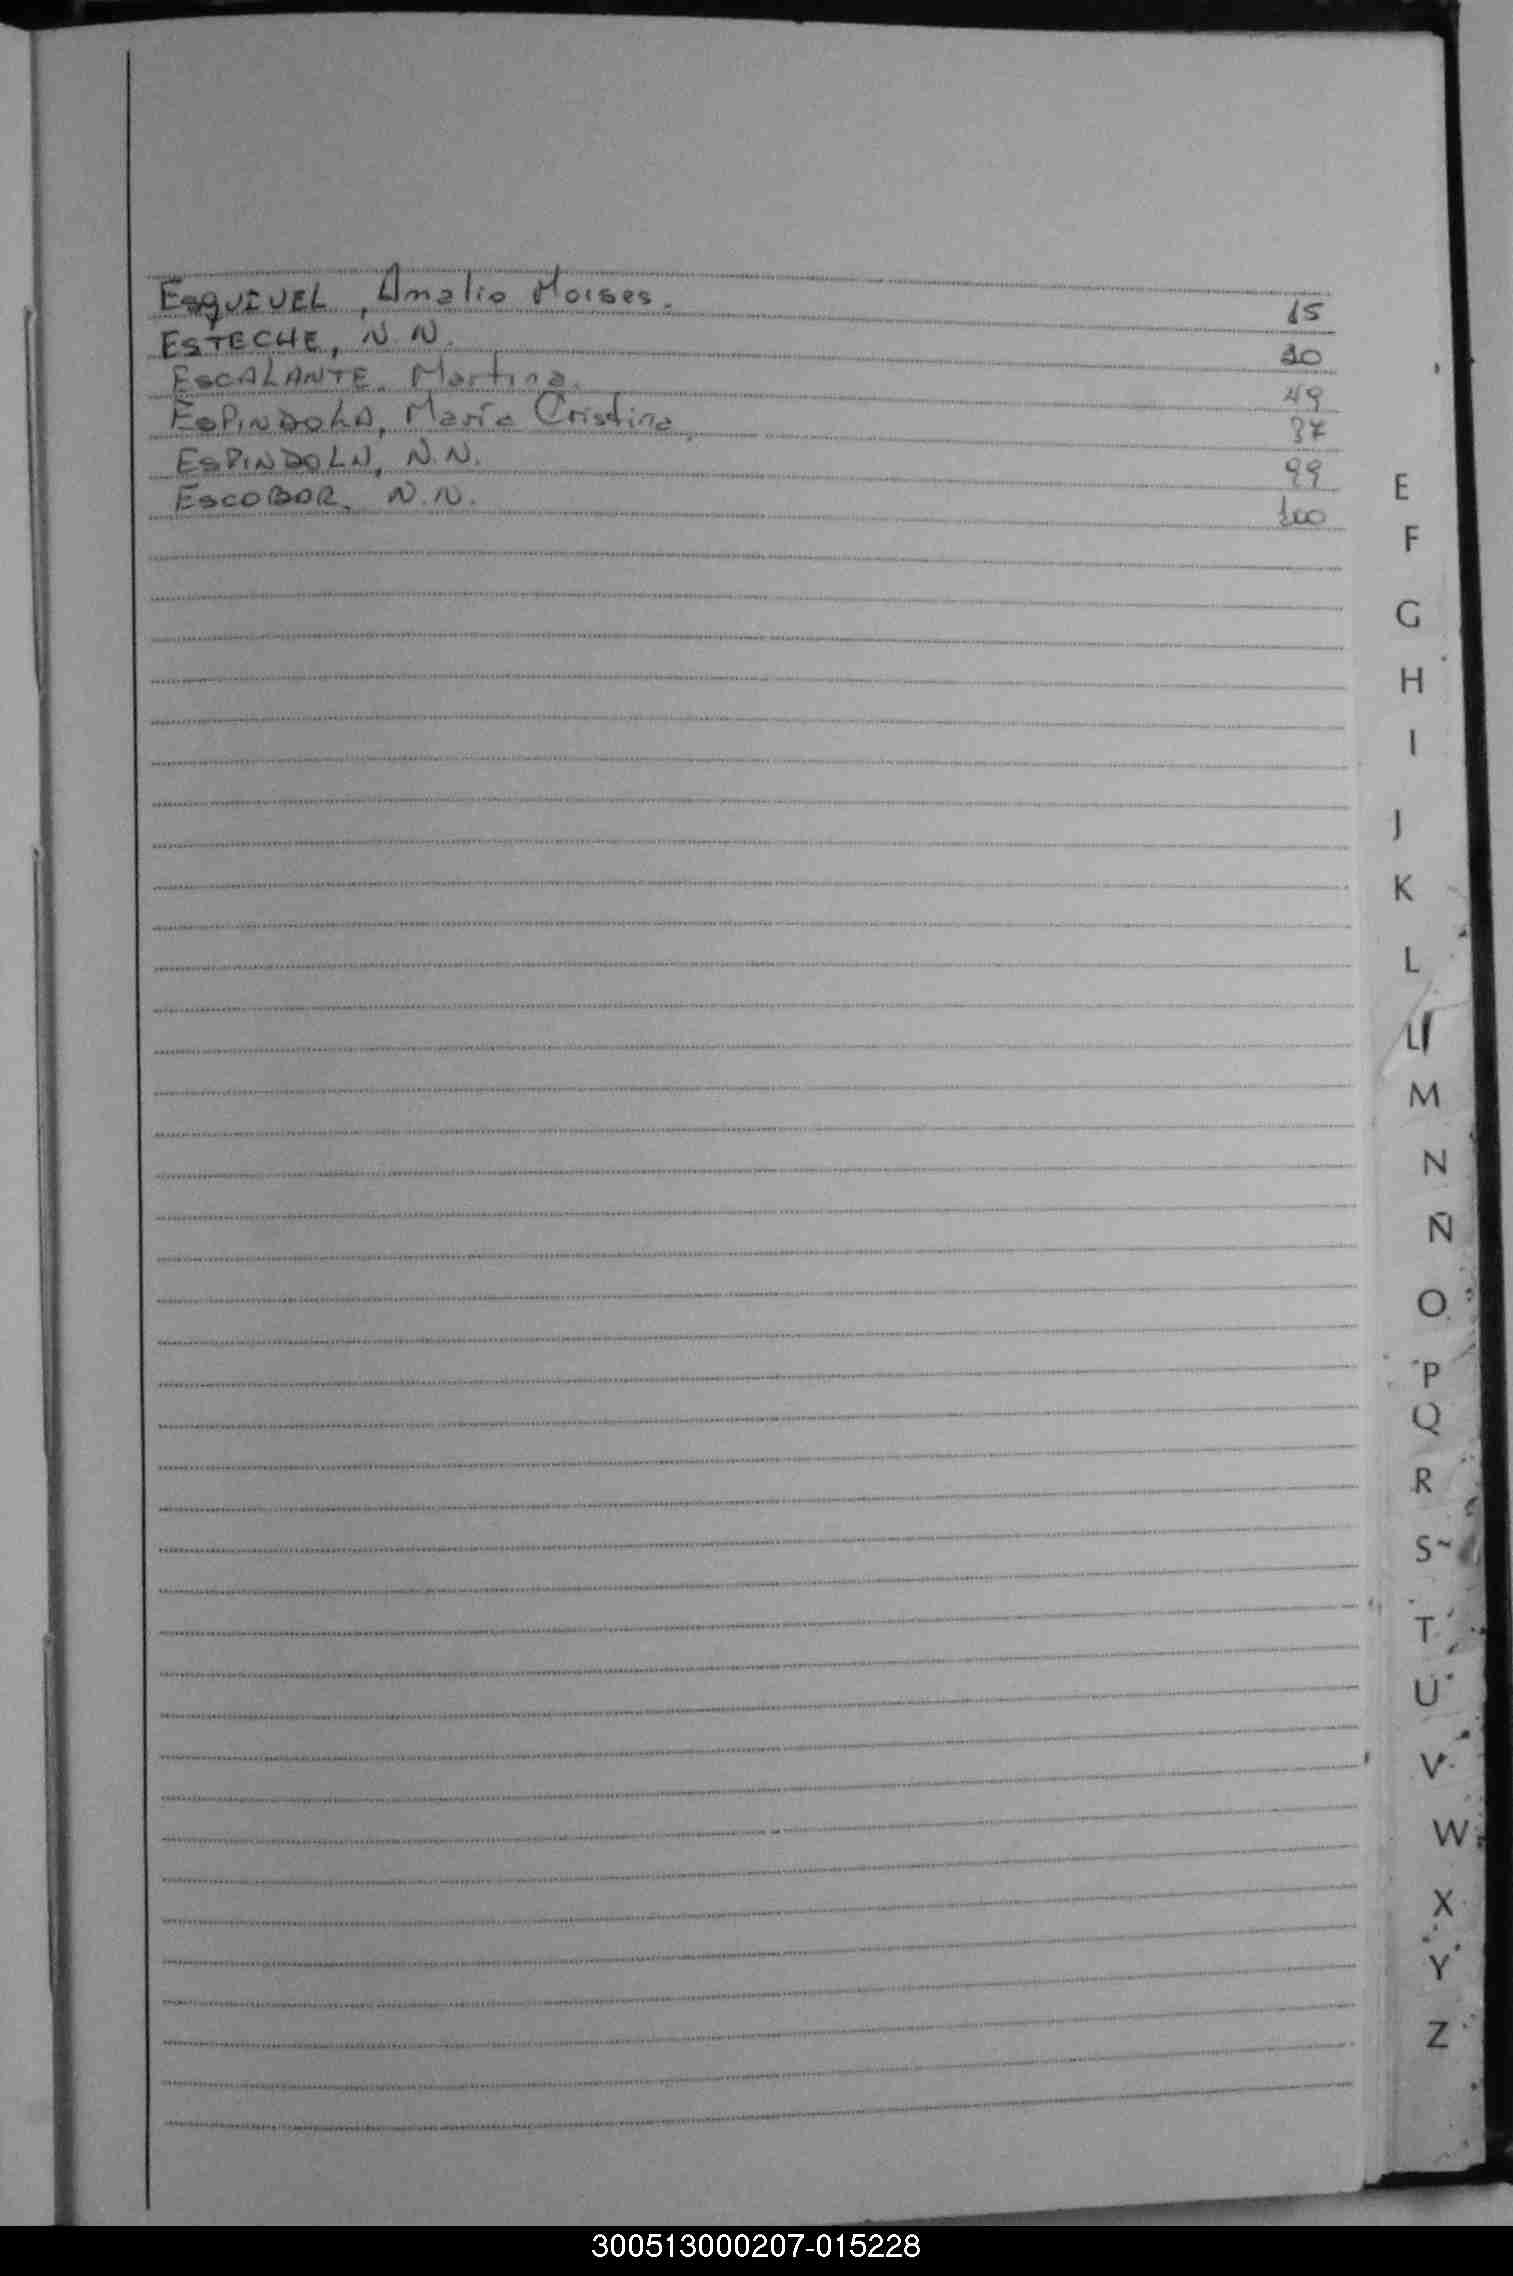 ESQUIVEL, Amalio Moises. 15
ESTECHE, N.N. 20
ESCALANTE, Martina. 49
ESPINDOLA, María Cristina, 37
ESPINDOLA, N.N. 99
ESCOBAR, N.N. 100
E
F
G
H
I
J
K
L
Ll
M
N
Ñ
O
P
Q
R
S
T
U
V
W
X
Y
Z
300513000207-015228